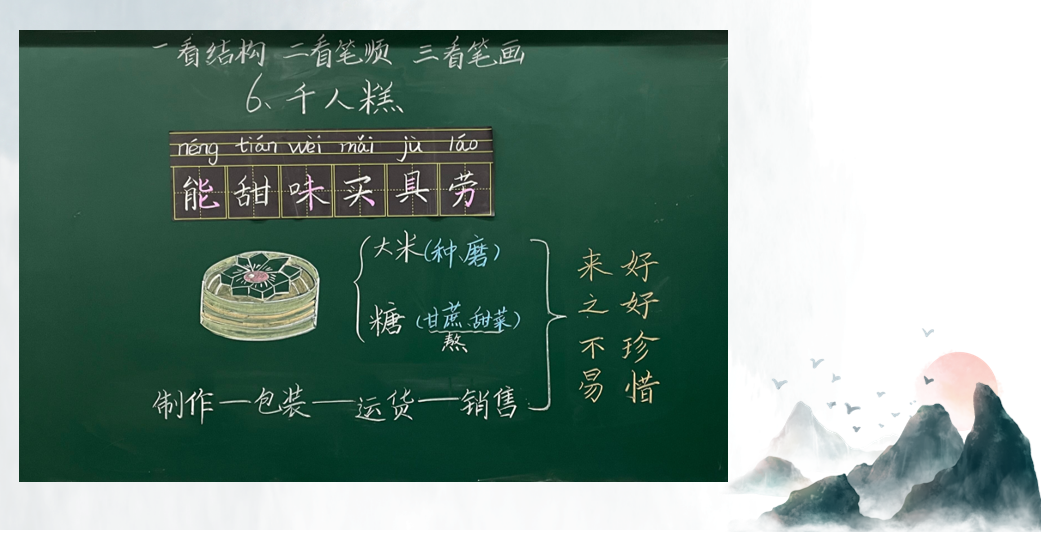 一看结构 二看笔顺 三看笔画
6、千人糕
néng tián wèi mǎi jù láo
能甜味买具劳
大米(种、磨)
糖(甘蔗、甜菜)
熬
制作—包装—运货—销售
来之不易
好好珍惜